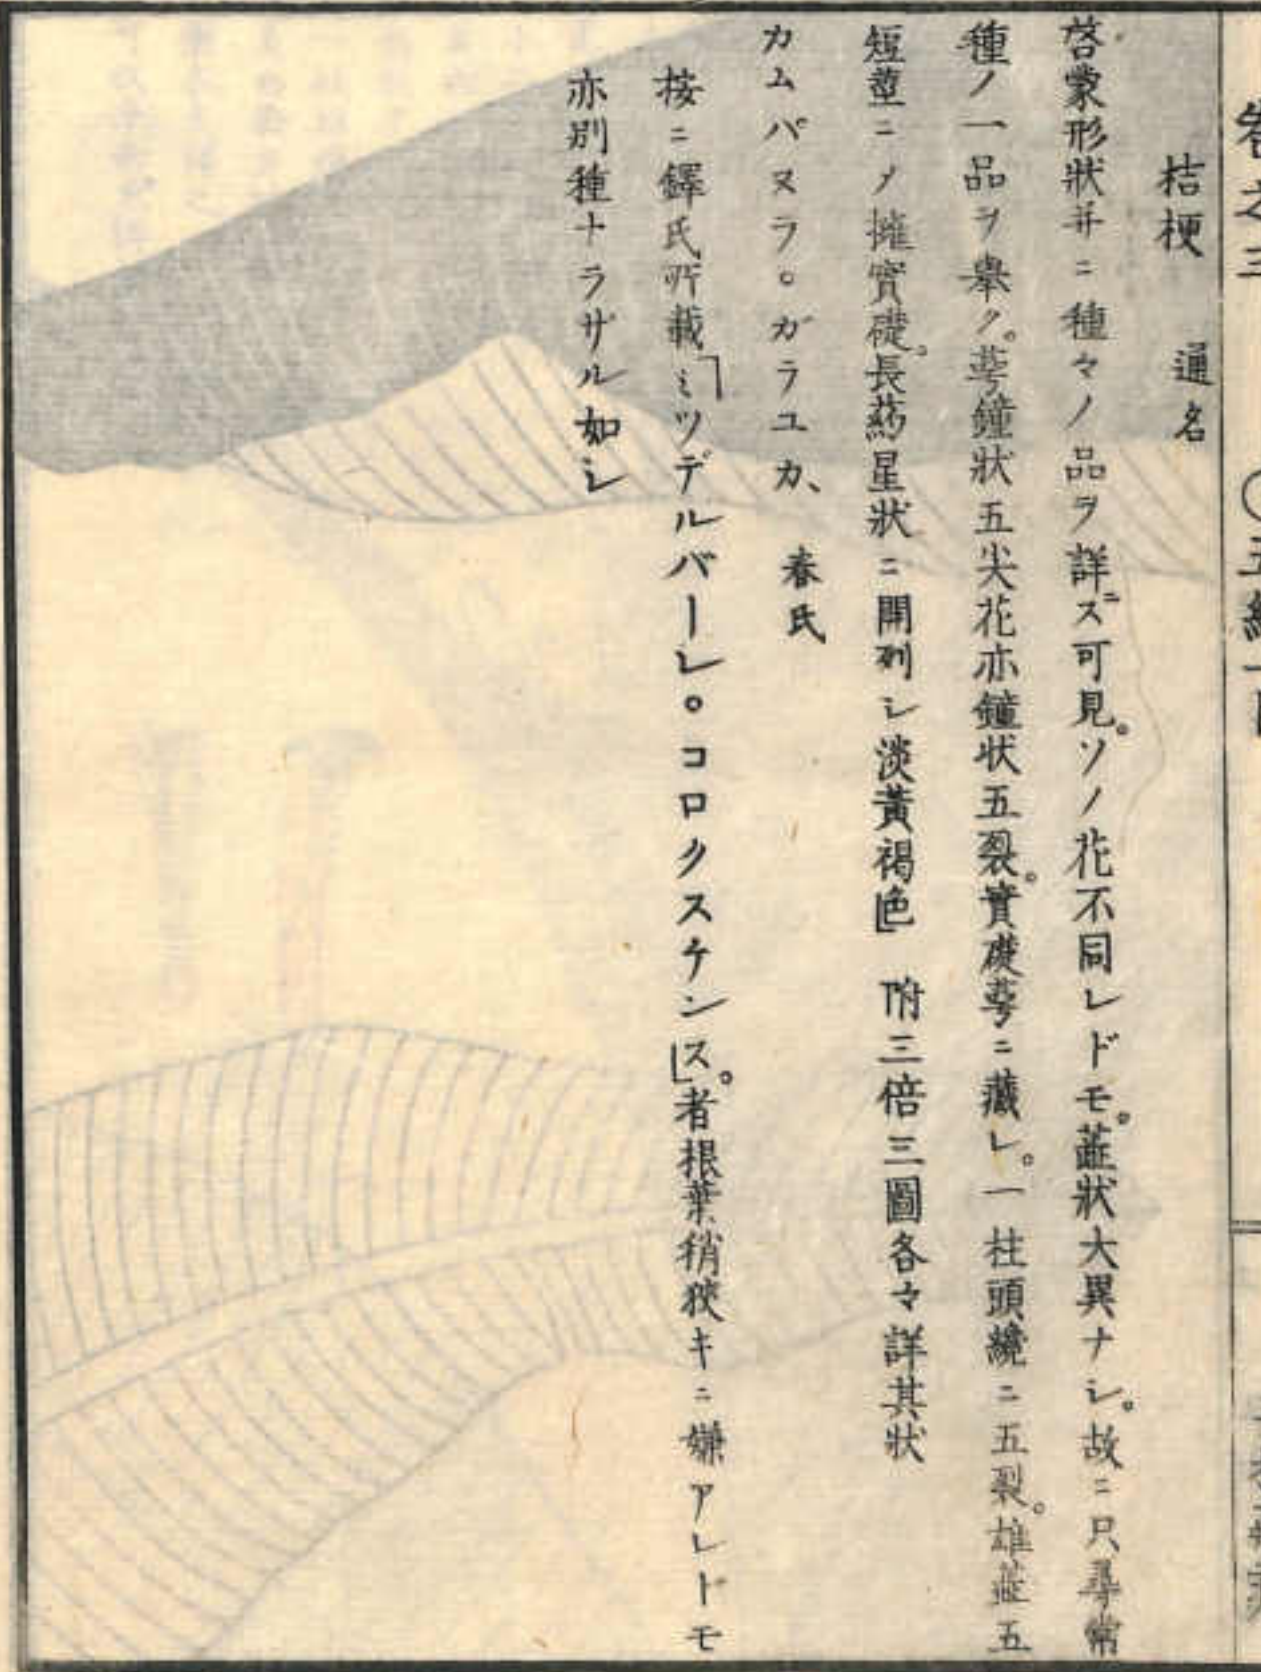 卷之三 〇五
桔梗 通名
啓蒙形狀并ニ種々ノ品ヲ詳ニス可見。ソノ花不同レドモ。蕋狀大異ナシ。故ニ只尋常
種ノ一品ヲ舉ク。萼鐘狀五尖花亦鐘状五裂。實礎萼ニ藏レ。一柱頭纔ニ五裂。雄蕋五
短莖ニ〆擁實礎。長葯星狀ニ開列シ淡黃褐色」 附三倍三圖各々詳其狀
カムパヌラ。ガラユカ、 春氏
按ニ鐸氏所載「ミツデルバーレ。コロクスケンス」。者根葉稍狹キニ嫌アレトモ
亦別種ナラサル如シ